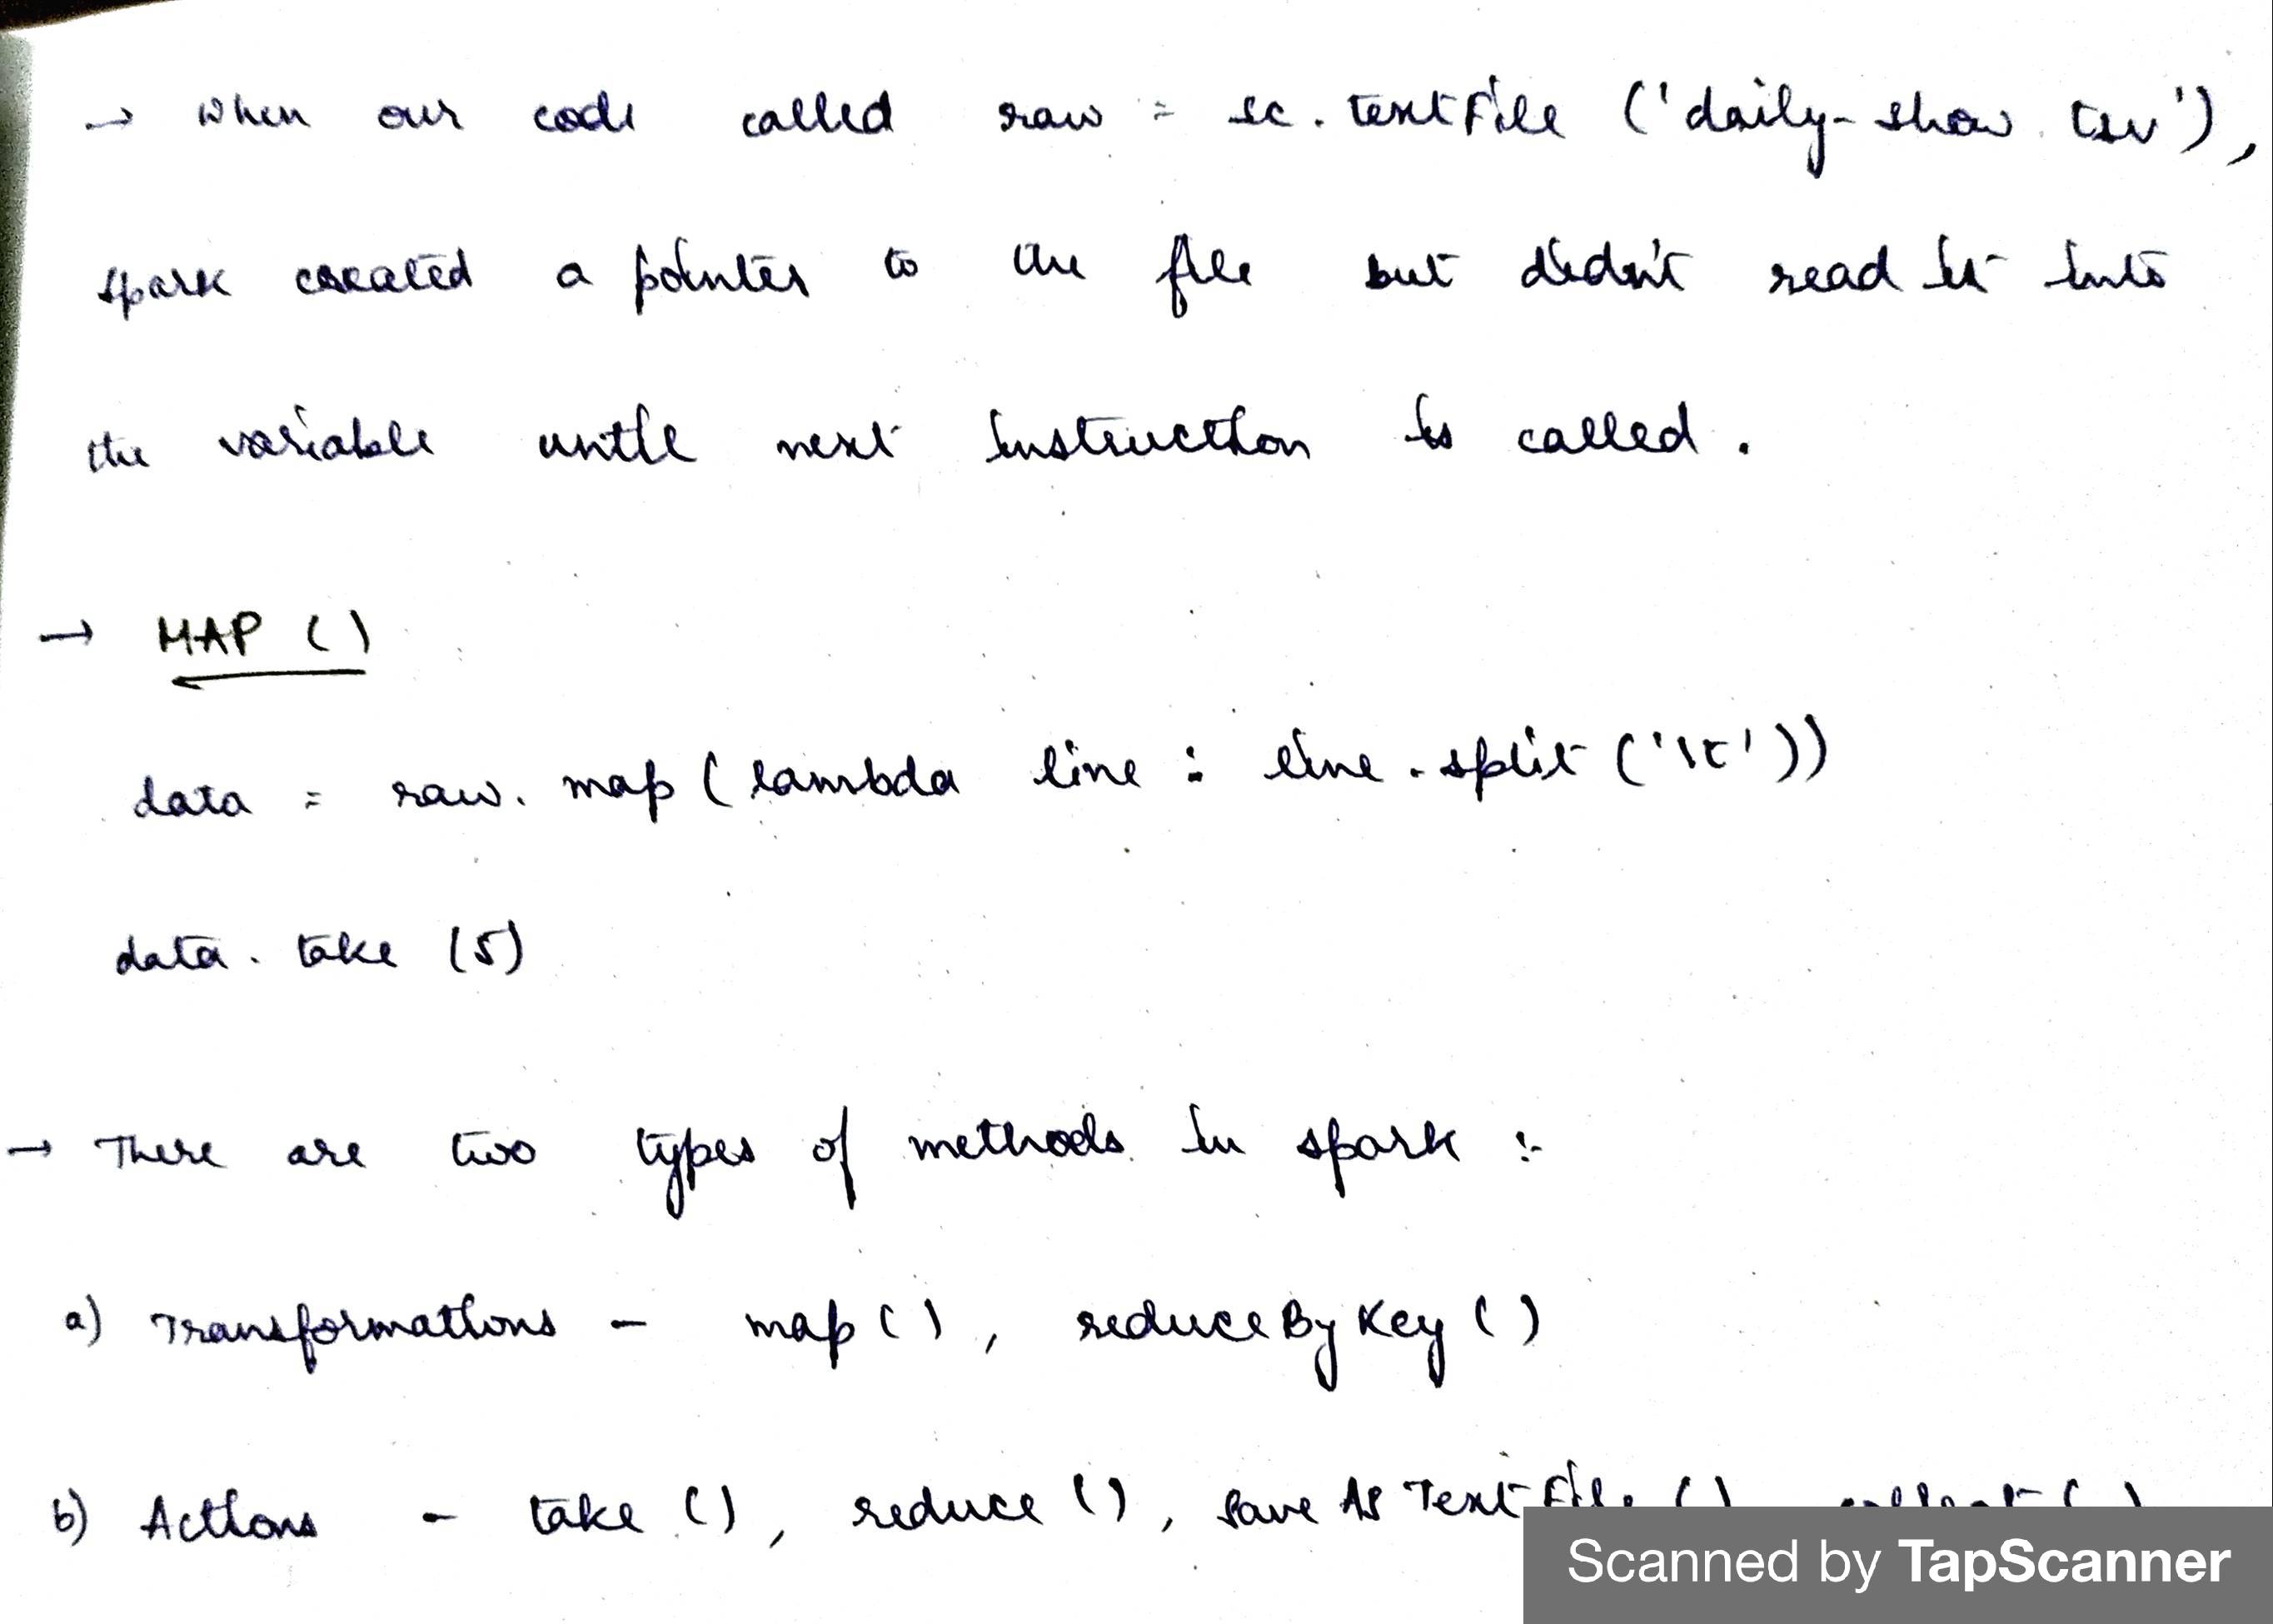 → When our code called raw = sc.textFile ('daily-show.tsv'),
spark created a pointer to the file but didn't read it into
the variable until next instruction is called.
→ MAP ()
data = raw. map (lambda line : line.split ('\t'))
data. take (5)
→ There are two types of methods in spark :-
a) Transformations - map (), reduceByKey ()
b) Actions - take (), reduce (), saveAsTextFile () collect ()
Scanned by TapScanner